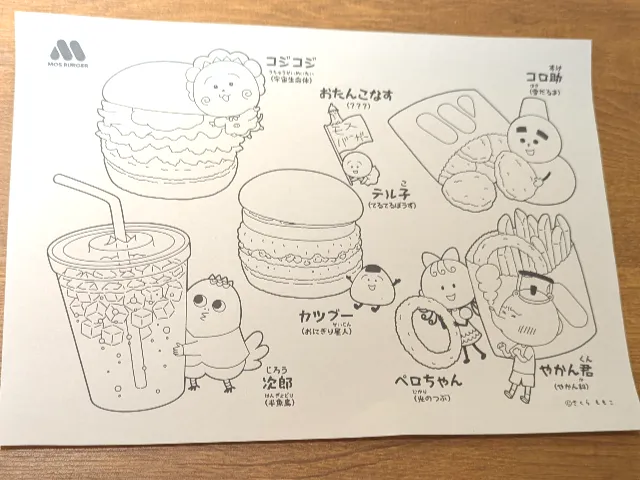 MOS BURGER
コジコジ
うちゅうせいめいたい
(宇宙生命体)
おたんこなす
(???)
モス
バーガー
すけ
コロ助
ゆき
(雪だるま)
テル子
こ
(てるてるぼうず)
カツブー
せいじん
(おにぎり星人)
じろう
次郎
はんぎょどり
(半魚鳥)
ペロちゃん
ひかり
(光のつぶ)
くん
やかん君
©さくらももこ